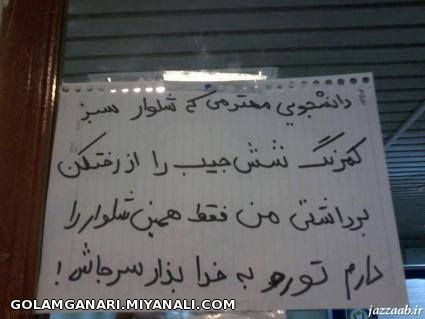 دانشجوی محترمی که شلوار سبز
کمرنگ شش جیب را از رختکن
برداشتی من فقط همین شلوار را
دارم تورو به خدا بذار سر جاش!
GOLAMGANARI.MIYANALI.COM
jazzaab.ir